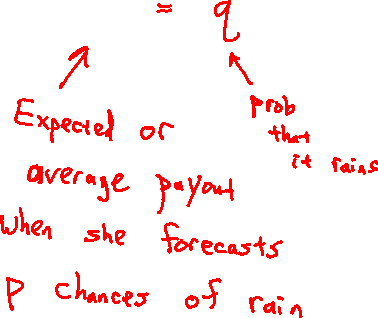 = q
Expected or
average payout
when she forecasts
p chances of rain
prob
that
it rains